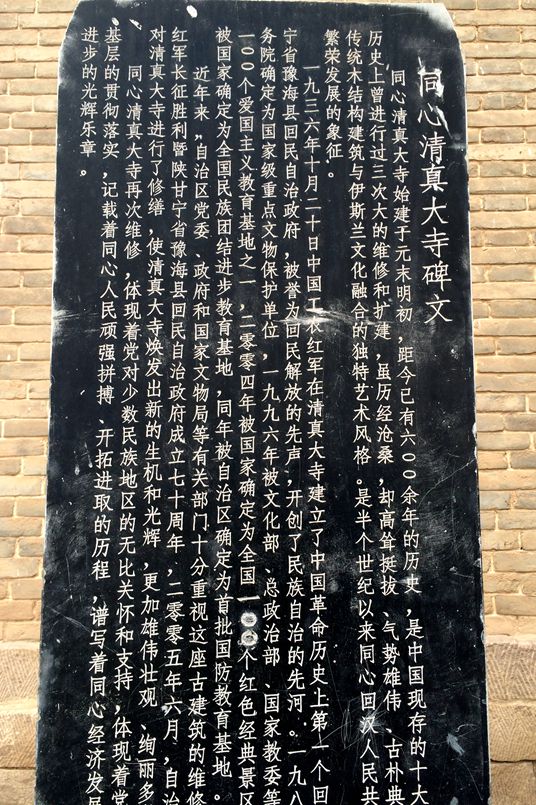 同心清真大寺碑文
同心清真大寺始建于元末明初，距今已有六00余年的历史，是中国现存的十大
历史上曾进行过三次大的维修和扩建，虽历经沧桑，却高耸挺拔、气势雄伟、古朴典
传统木结构建筑与伊斯兰文化融合的独特艺术风格。是半个世纪以来同心回汉人民共
繁荣发展的象征。
一九三六年十月二十日中国工农红军在清真大寺建立了中国革命历史上第一个回
宁省豫海县回民自治政府，被誉为回民解放的先声，开创了民族自治的先河。一九八
务院确定为国家级重点文物保护单位，一九九六年被文化部、总政治部、国家教委等
一00个爱国主义教育基地之一，二零零四年被国家确定为全国一00个红色经典景区
被国家确定为全国民族团结进步教育基地，同年被自治区确定为首批国防教育基地。
近年来，自治区党委、政府和国家文物局等有关部门十分重视这座古建筑的维修
红军长征胜利暨陕甘宁省豫海县回民自治政府成立七十周年，二零零五年六月，自治
对清真大寺进行了修缮，使清真大寺焕发出新的生机和光辉，更加雄伟壮观、绚丽多
同心清真大寺再次维修，体现着党对少数民族地区的无比关怀和支持，体现着党
基层的贯彻落实，记载着同心人民顽强拼搏、开拓进取的历程，谱写着同心经济发展
进步的光辉乐章。